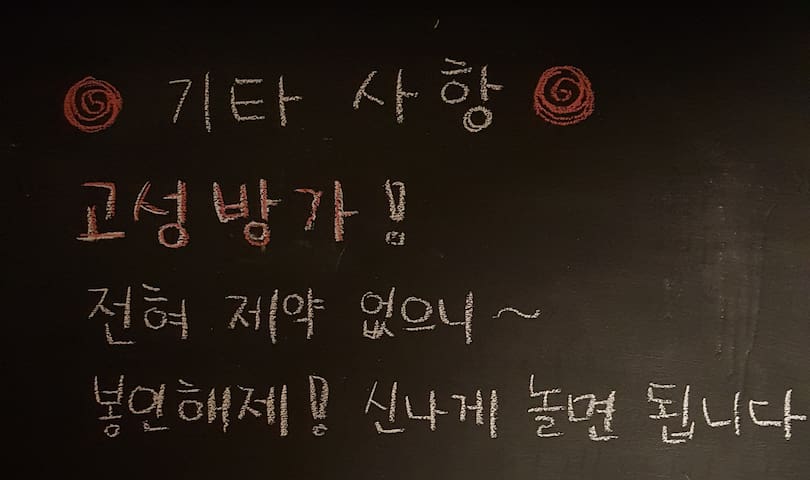 기타 사항
고성방가!
전혀 제약 없으니~
봉인해제! 신나게 놀면 됩니다